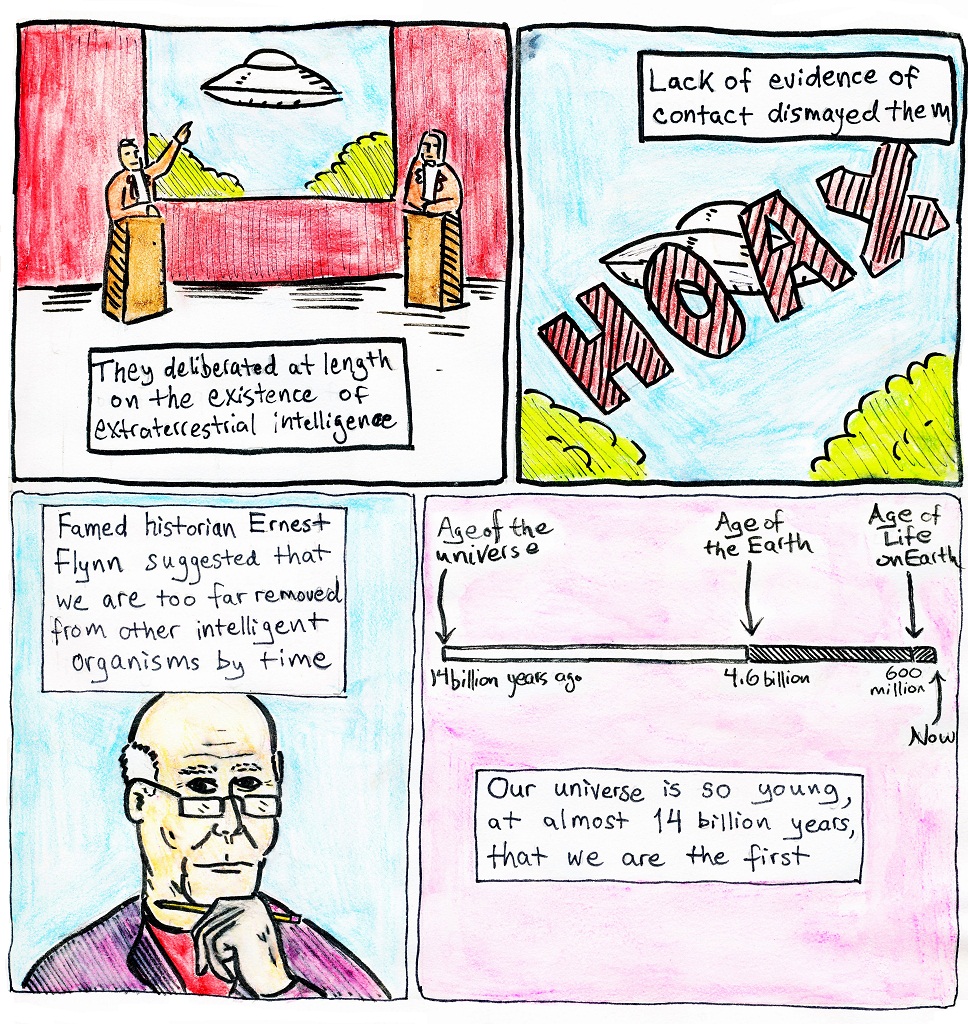 They deliberated at length
on the existence of
extraterrestrial intelligence
Lack of evidence of
contact dismayed them
HOAX
Famed historian Ernest
Flynn suggested that
we are too far removed
from other intelligent
organisms by time
Age of the
universe
Age of
the Earth
Age of
Life
on Earth
14 billion years ago
4.6 billion
600
million
Now
Our universe is so young,
at almost 14 billion years,
that we are the first